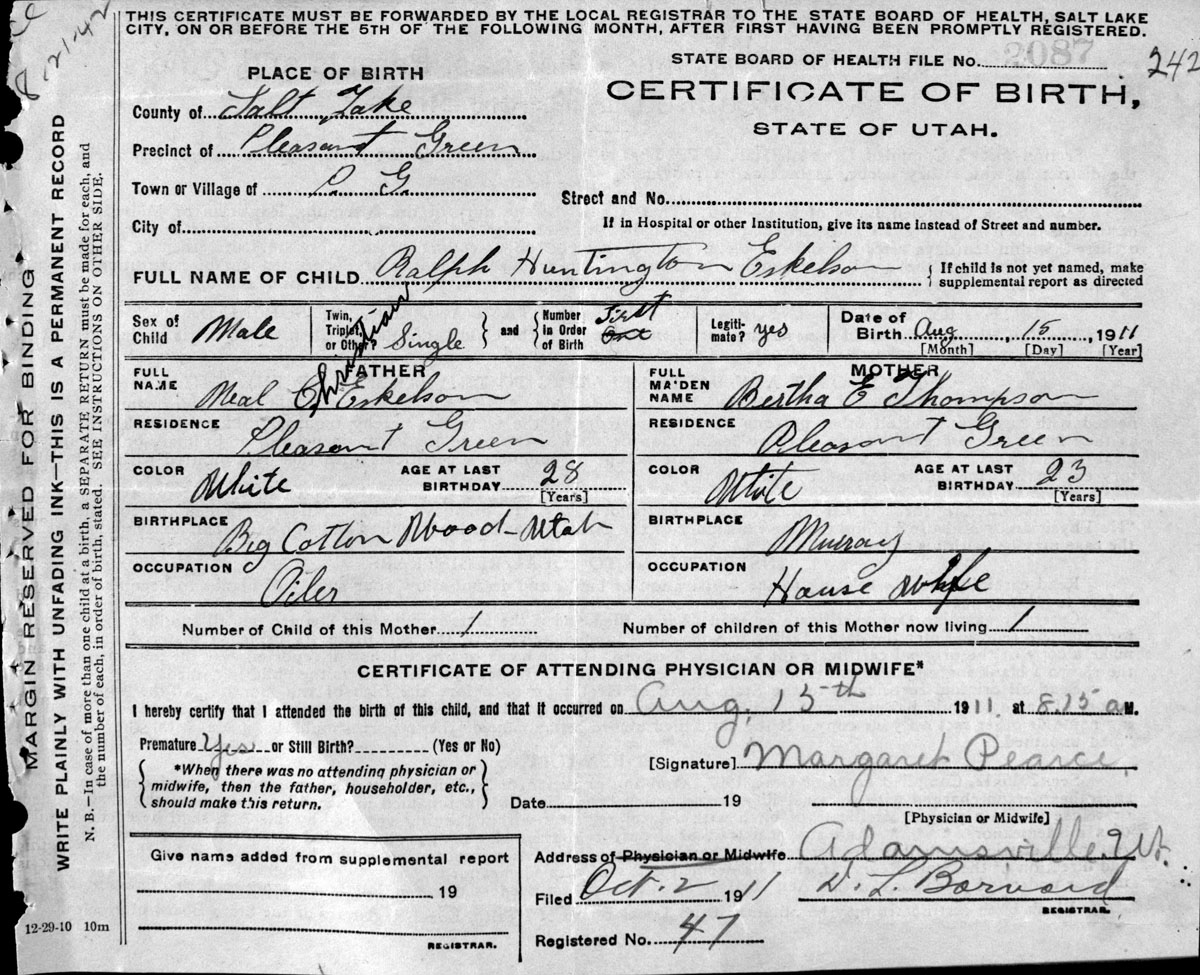 8-21-42
THIS CERTIFICATE MUST BE FORWARDED BY THE LOCAL REGISTRAR TO THE STATE BOARD OF HEALTH, SALT LAKE
CITY, ON OR BEFORE THE 5TH OF THE FOLLOWING MONTH, AFTER FIRST HAVING BEEN PROMPTLY REGISTERED.
STATE BOARD OF HEALTH FILE No. 2087 242
PLACE OF BIRTH
CERTIFICATE OF BIRTH,
STATE OF UTAH.
County of Salt Lake
Precinct of Pleasant Green
Town or Village of P. G.
Street and No.
City of
If in Hospital or other Institution, give its name instead of Street and number.
FULL NAME OF CHILD Ralph Huntington Eskelson { If child is not yet named, make supplemental report as directed
Sex of Child Male Twin, Triplet, or Other? Single } and { Number in Order of Birth First One Legitimate? yes Date of Birth Aug 15, 1911
[Month] [Day] [Year]
FATHER MOTHER
FULL NAME Neal Christian C Eskelson FULL MAIDEN NAME Bertha E Thompson
RESIDENCE Pleasant Green RESIDENCE Pleasant Green
COLOR White AGE AT LAST BIRTHDAY 28 [Years] COLOR White AGE AT LAST BIRTHDAY 23 [Years]
BIRTHPLACE Big Cotton Wood-Utah BIRTHPLACE Murray
OCCUPATION Oiler OCCUPATION House Wife
Number of Child of this Mother 1 Number of children of this Mother now living 1
CERTIFICATE OF ATTENDING PHYSICIAN OR MIDWIFE*
I hereby certify that I attended the birth of this child, and that it occurred on Aug, 15th 1911. at 8.15 a M.
Premature Yes or Still Birth? (Yes or No)
[Signature] Margaret Pearce,
{ *When there was no attending physician or
midwife, then the father, householder, etc.,
should make this return. }
Date 19
[Physician or Midwife]
Give name added from supplemental report
19
REGISTRAR.
Address of Physician or Midwife Adamsville Ut.
Filed Oct. 2 1911 D. L. Barnard
REGISTRAR.
Registered No. 47
12-29-10 10m
MARGIN RESERVED FOR BINDING
WRITE PLAINLY WITH UNFADING INK—THIS IS A PERMANENT RECORD
N. B.—In case of more than one child at a birth, a SEPARATE RETURN must be made for each, and
the number of each, in order of birth, stated. SEE INSTRUCTIONS ON OTHER SIDE.